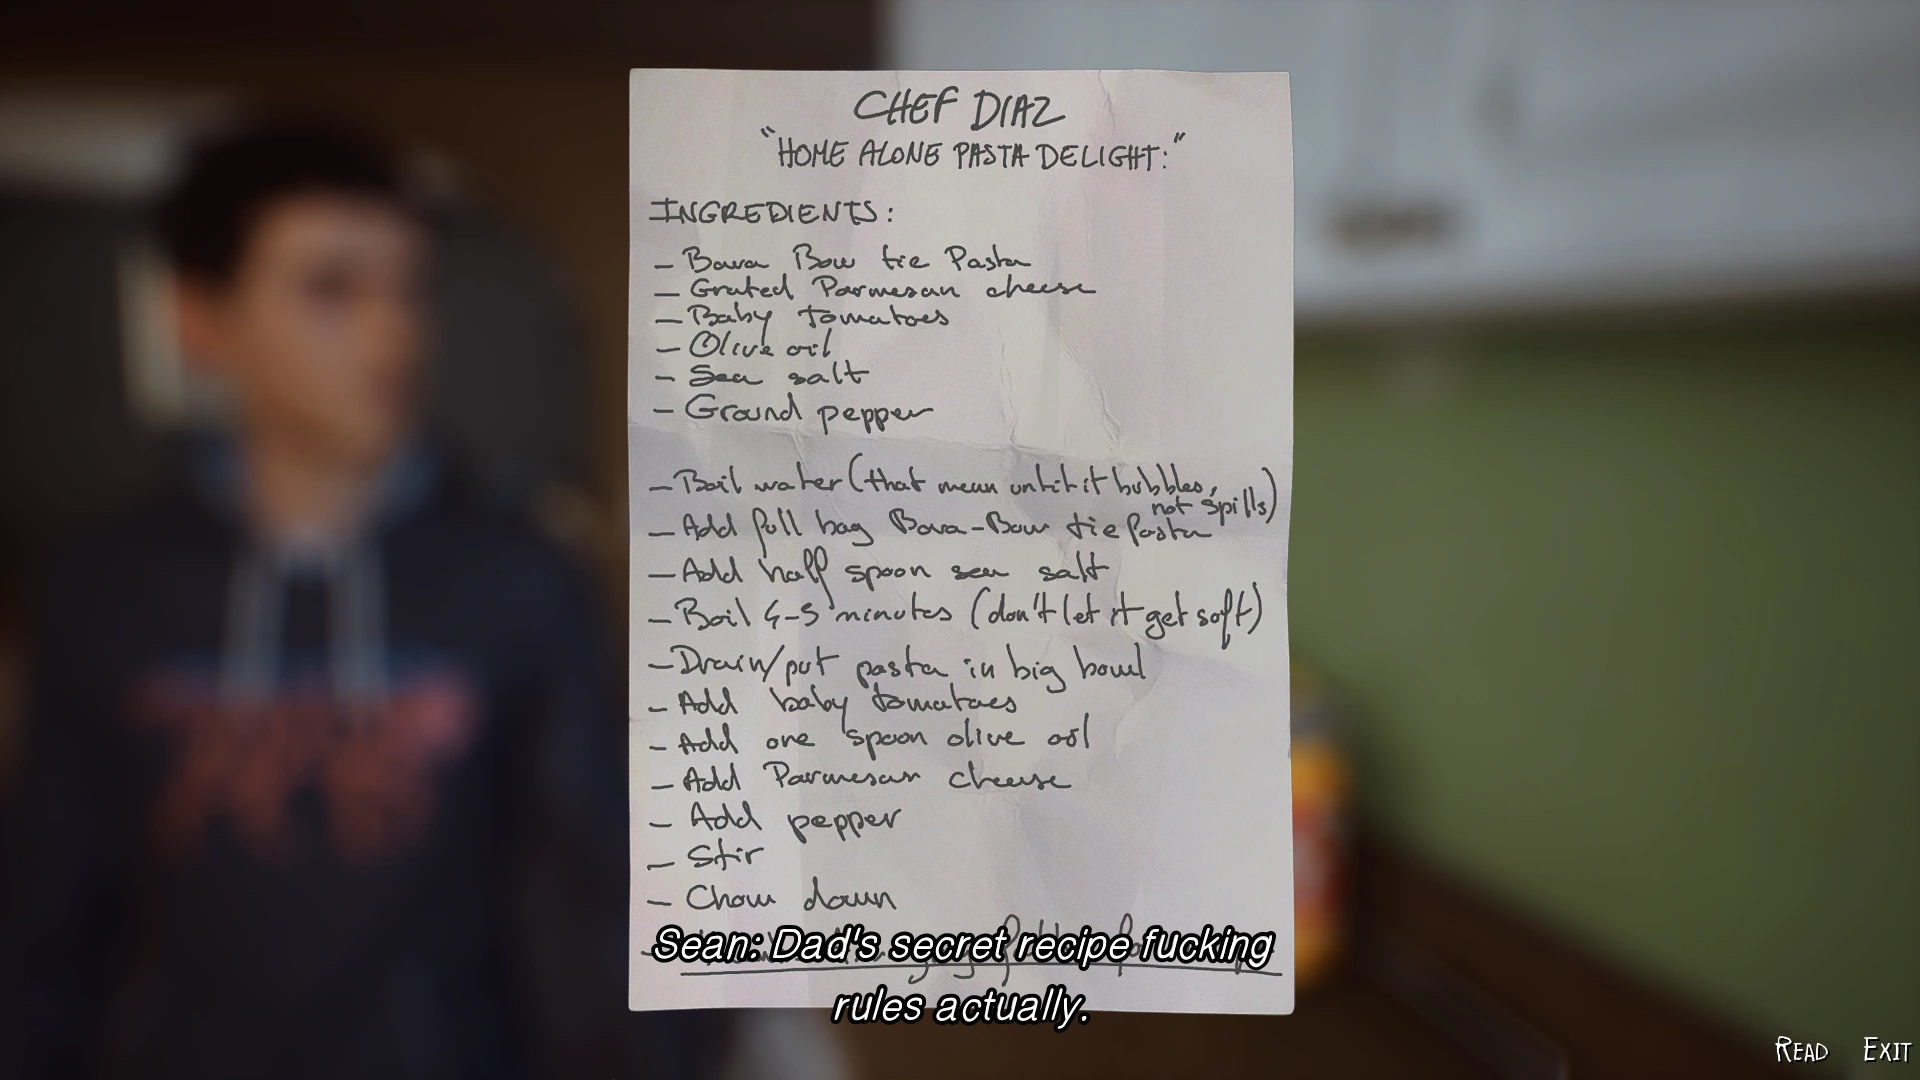 CHEF DIAZ
"HOME ALONE PASTA DELIGHT:"
INGREDIENTS:
- Bava Bow tie Pasta
- Grated Parmesan cheese
- Baby tomatoes
- Olive oil
- Sea salt
- Ground pepper
- Boil water (that mean until it bubbles,
not spills)
- Add full bag Bava-Bow tie Pasta
- Add half spoon sea salt
- Boil 4-5 minutes (don't let it get soft)
- Drain/put pasta in big bowl
- Add baby tomatoes
- Add one spoon olive oil
- Add Parmesan cheese
- Add pepper
- Stir
- Chow down
Sean: Dad's secret recipe fucking
rules actually.
READ EXIT